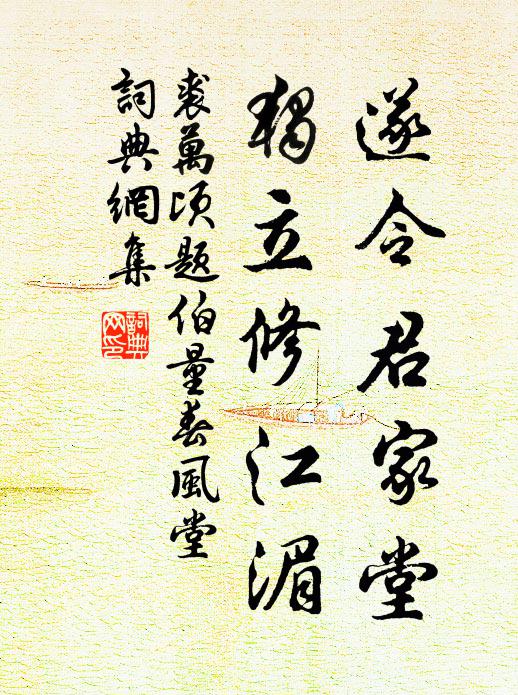 遂令君家堂
獨立修江湄
裘萬頃題伯量春風堂
詞典網集
詞典網印